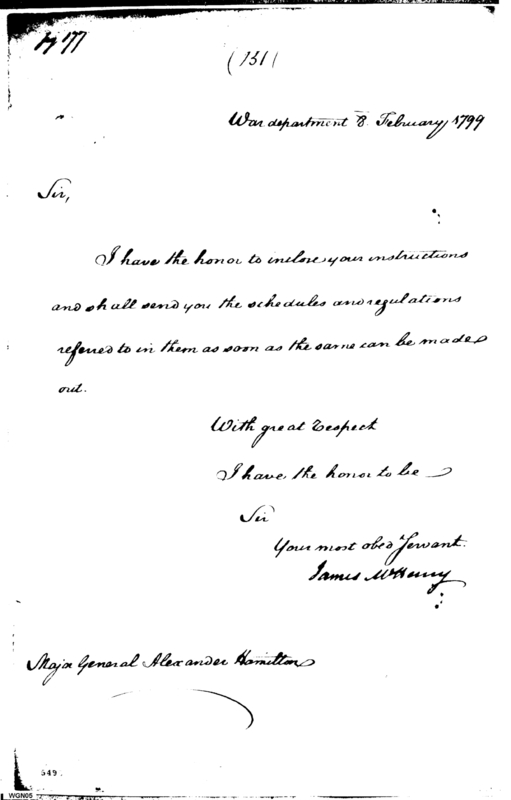 (131)
War department 8. February 1799
Sir,
I have the honor to inclose your instructions
and shall send you the schedules and regulations
referred to in them as soon as the same can be made
out.
With great respect
I have the honor to be
Sir
Your most obed Servant.
James McHenry
Major General Alexander Hamilton
549.
WGN05